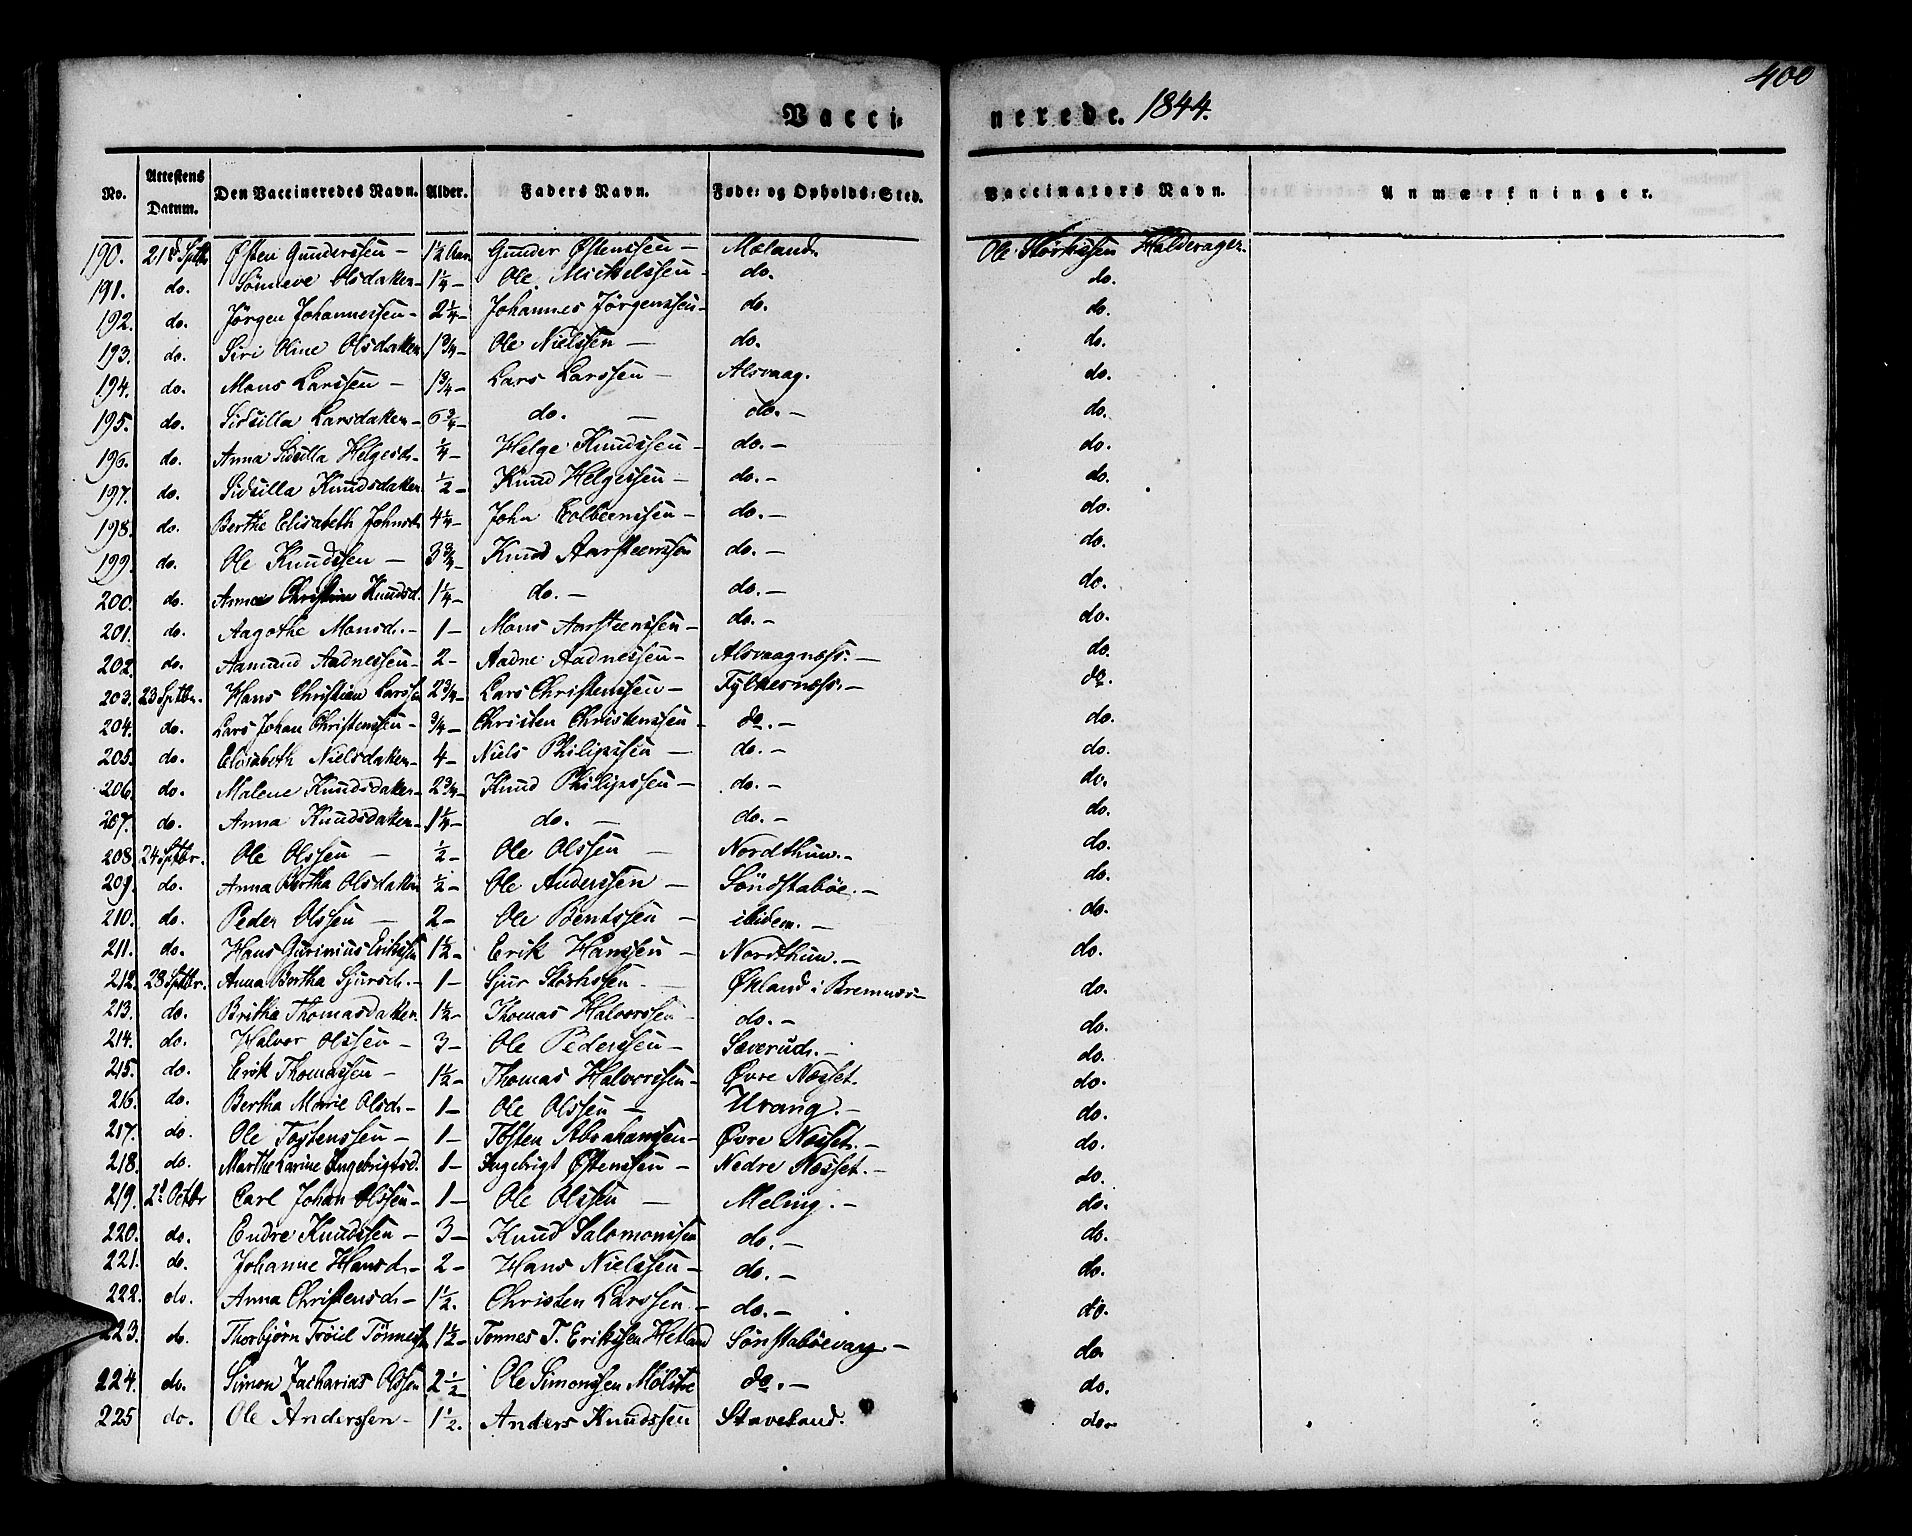 400
Vacci-nerede. 1844.
No. Attestens Datum. Den Vaccineredes Navn. Alder. Faders Navn. Føde- og Opholds-Sted. Vaccinators Navn. Anmærkninger.
190. 21d Sptbr Østen Gunderssen - 1½ Aar. Gunder Østenssen - Mæland. Ole Størkssen Haldorager.
191. do. Sønneve Olsdatter - 1¼ - Ole Mickelssen - do. do.
192. do. Jørgen Johannessen - 2¼ - Johannes Jørgenssen - do. do.
193. do. Siri Oline Olsdatter 1¾ - Ole Nielssen - do. do.
194. do. Mons Larssen - 1¾ - Lars Larssen - Alsvaag. do.
195. do. Sidsilla Larsdatter - 6¾ - do. - do. - do.
196. do. Anna Sidsilla Helgesd. - ¼ - Helge Knudssen - do. - do.
197. do. Sidsilla Knudsdatter ½ - Knud Helgessen - do. - do.
198. do. Berthe Elisabeth Johnsd. 4¼ - John Colbeenssen - do. - do.
199. do. Ole Knudssen - 3¾ - Knud Aarsteenssen do. - do.
200. do. Anna Christine Knudsd. 1¼ - do. - do. - do.
201. do. Aagothe Monsd. - 1 - Mons Aarsteenssen - do. - do.
202. do. Aamund Aadnessen - 2 - Aadne Aadnessen - Alsvaagnæss. - do.
203. 23 Sptbr. Hans Christian Larssen 2¾ - Lars Christenssen - Fylkesnæss. - do.
204. do. Lars Johan Christenssen - ¾ - Christen Christenssen - do. - do.
205. do. Elisabeth Nielsdatter - 4 - Niels Philipssen - do. - do.
206. do. Malene Knudsdatter - 2¾ - Knud Philipssen - do. - do.
207. do. Anna Knudsdatter - 1¼ - do. - do. - do.
208. 24 Sptbr. Ole Olssen - ½ - Ole Olssen - Nordthun. - do.
209. do. Anna Bertha Olsdatter ½ - Ole Anderssen - Søndstabøe. - do.
210. do. Peder Olssen - 2 - Ole Bentssen - ibidem. - do.
211. do. Hans Gurinius Erikssen 1½ - Erik Hanssen - Nordthun. - do.
212. 28 Sptbr. Anna Bertha Sjursd. - 1 - Sjur Størkssen. - Økland i Bremnæss - do.
213. do. Britha Thomasdatter. 1½ - Thomas Halvorssen - do. - do.
214. do. Halvor Olssen - 3 - Ole Pederssen - Sæverud. - do.
215. do. Erik Thomassen - 1½ - Thomas Halvorssen - Øvre Næsset. do.
216. do. Bertha Marie Olsd. - 1 - Ole Olssen - Urang. - do.
217. do. Ole Tostenssen - 1 - Tosten Abrahamssen - Øvre Næsset. - do.
218. do. Marthe Karine Ingebrigtsd. 1 - Ingebrigt Østenssen - Nedre Næsset. - do.
219. 2d Octbr Carl Johan Olssen - 1 - Ole Olssen - Meling. - do.
220. do. Endre Knudssen - 3 - Knud Salomonssen do. - do.
221. do. Johanne Hansd. - 2 - Hans Nielssen - do. - do.
222. do. Anna Christensd. - 1½. Christen Larssen - do. - do.
223. do. Thorbjørn Trøiel Tønness. 1½ - Tønnes T. Erikssen Hetland Sønstabøevaag. - do.
224. do. Simon Zacharias Olssen 2½ Ole Simonssen Mølstre do. - do.
225 do. Ole Anderssen - 1½. Anders Knudssen Staveland. do.